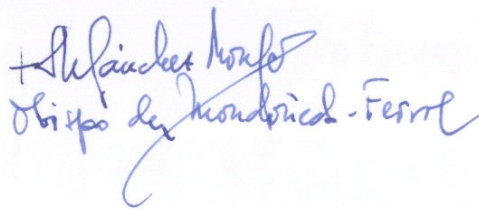 + M. Sánchez Monge
Obispo de Mondoñedo-Ferrol